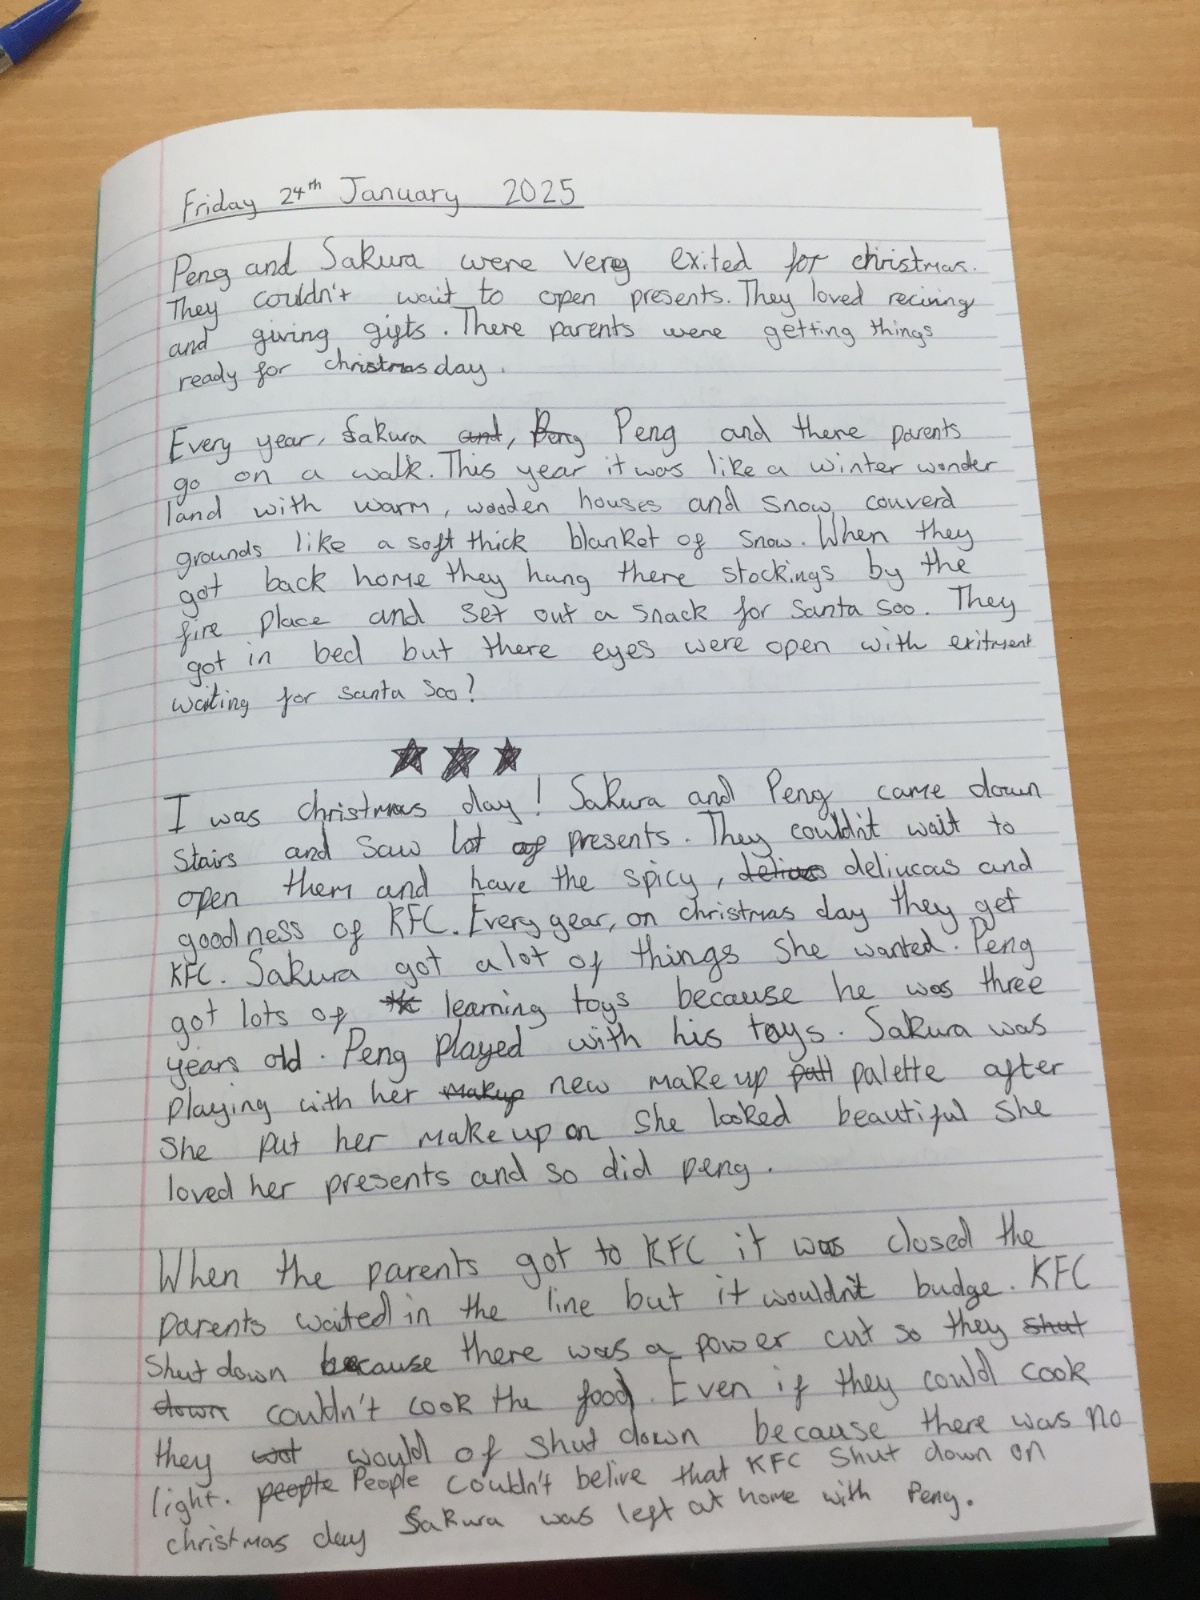 Friday 24th January 2025
Peng and Sakura were very exited for christmas.
They couldn't wait to open presents. They loved reciving
and giving gifts. There parents were getting things
ready for christmas day.
Every year, Sakura and, Peng Peng and there parents
go on a walk. This year it was like a winter wonder
land with warm, wooden houses and snow couverd
grounds like a soft thick blanket of snow. When they
got back home they hung there stockings by the
fire place and set out a snack for santa soo. They
got in bed but there eyes were open with exitment
waiting for santa soo?
I was christmas day! Sakura and Peng came down
stairs and saw lot of presents. They couldn't wait to
open them and have the spicy, deliucous and
goodness of KFC. Every year, on christmas day they get
KFC. Sakura got a lot of things she wanted. Peng
got lots of learning toys because he was three
years old. Peng played with his toys. Sakura was
playing with her makup new make up pall palette after
she put her make up on she looked beautiful she
loved her presents and so did peng.
When the parents got to KFC it was closed the
parents waited in the line but it wouldn't budge. KFC
shut down because there was a power cut so they shut
down couldn't cook the food. Even if they could cook
they would of shut down because there was no
light. people People couldn't belive that KFC shut down on
christmas day Sakura was left at home with Peng.